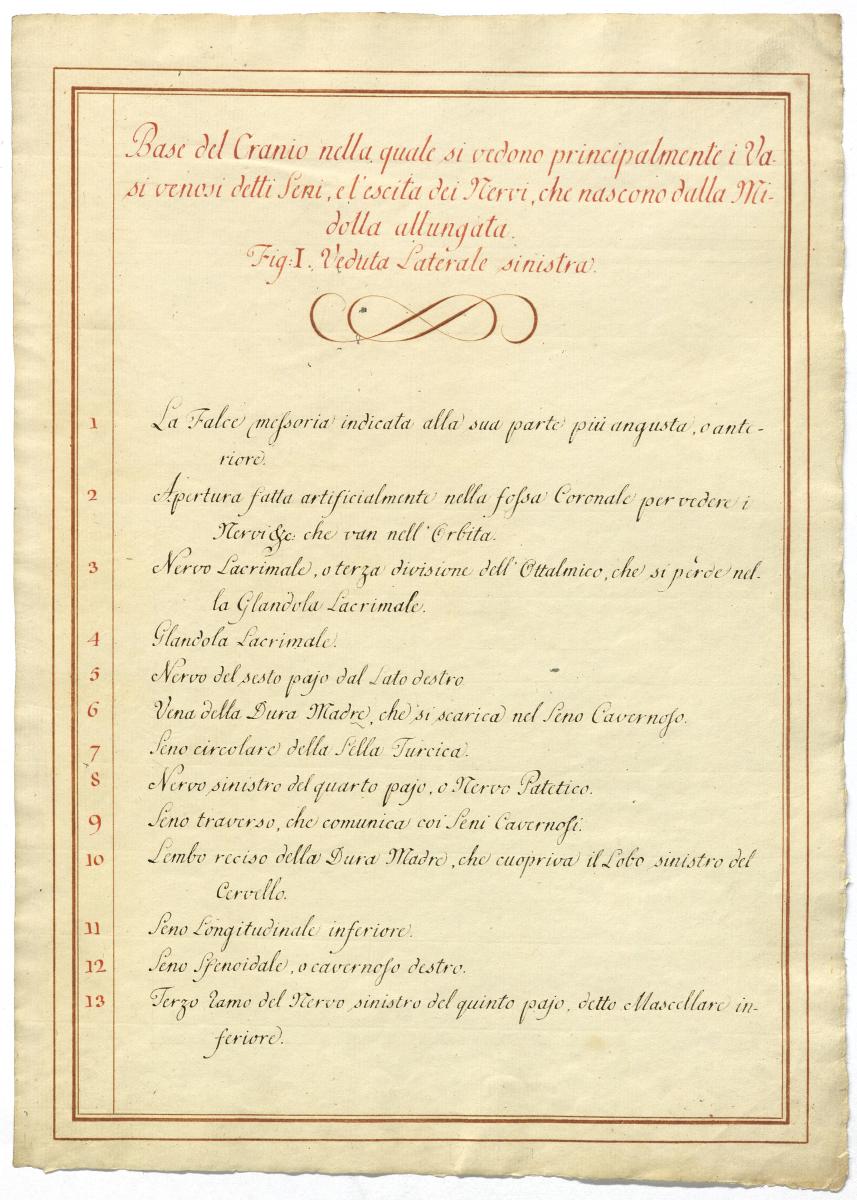 Base del Cranio nella quale si vedono principalmente i Va-
si venosi detti Seni, e l'escita dei Nervi, che nascono dalla Mi-
dolla allungata.
Fig: I. Veduta Laterale sinistra.
1 La Falce messoria indicata alla sua parte più angusta, o ante-
riore.
2 Apertura fatta artificialmente nella fossa Coronale per vedere i
Nervi &c: che van nell'Orbita.
3 Nervo Lacrimale, o terza divisione dell'Ottalmico, che si perde nel-
la Glandola Lacrimale.
4 Glandola Lacrimale.
5 Nervo del sesto pajo dal Lato destro
6 Vena della Dura Madre, che si scarica nel Seno Cavernoso.
7 Seno circolare della Sella Turcica.
8 Nervo sinistro del quarto pajo, o Nervo Patetico.
9 Seno traverso, che comunica coi Seni Cavernosi.
10 Lembo reciso della Dura Madre, che cuopriva il Lobo sinistro del
Cervello.
11 Seno Longitudinale inferiore.
12 Seno Sfenoidale, o cavernoso destro.
13 Terzo ramo del Nervo sinistro del quinto pajo, detto Mascellare in-
feriore.